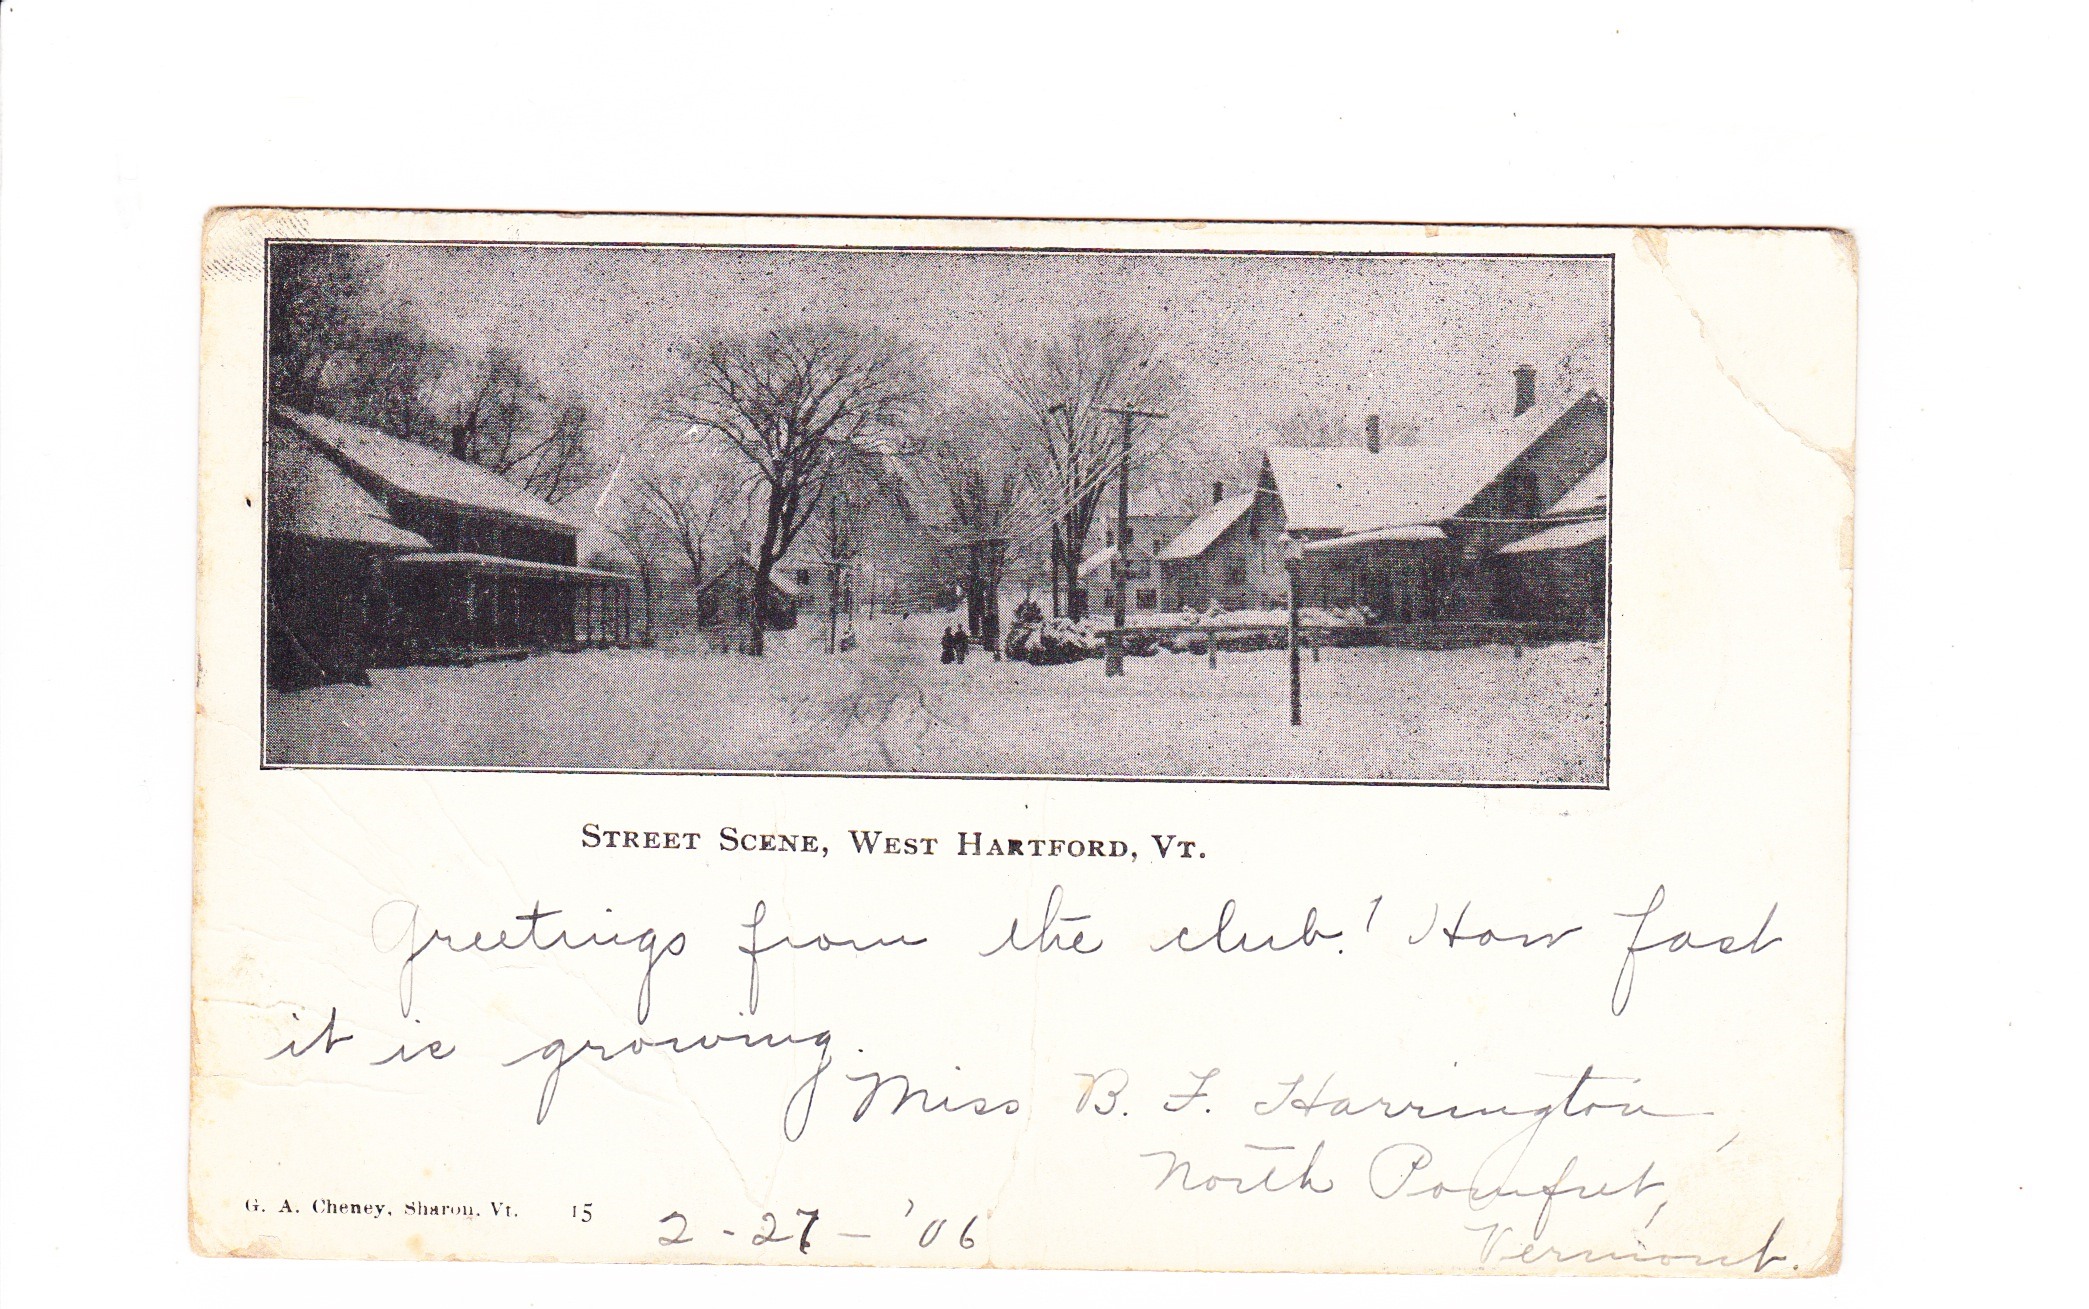 STREET SCENE, WEST HARTFORD, VT.
Greetings from the club! How fast
it is growing.
Miss B. F. Harrington,
North Pomfret,
Vermont.
G. A. Cheney, Sharon, Vt. 15
2-27-'06